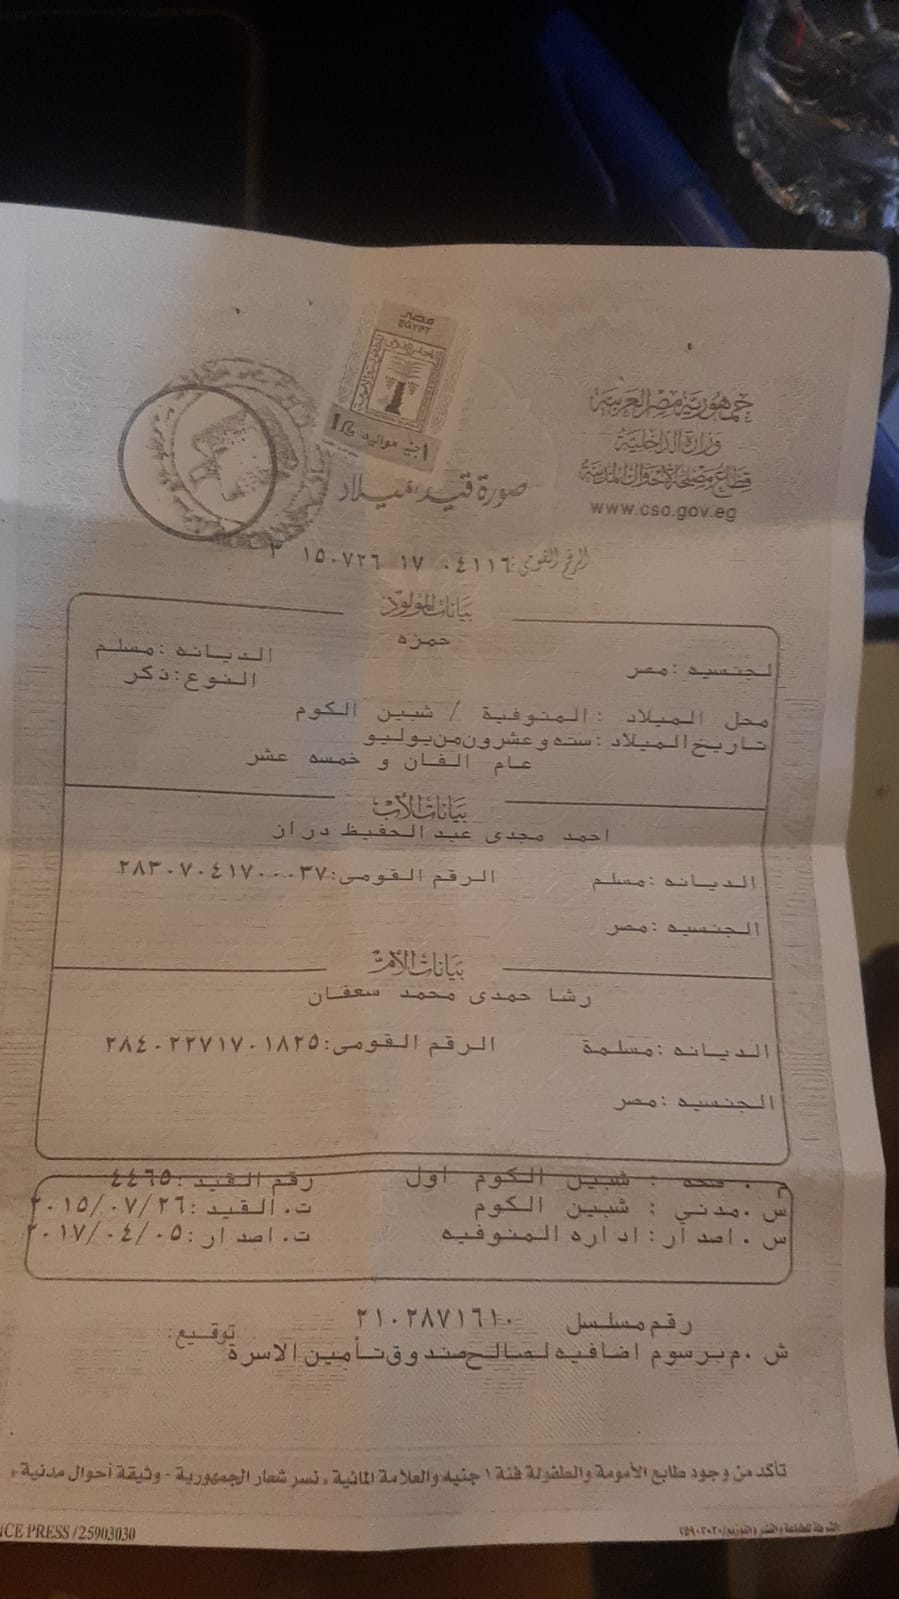 مصر
EGYPT
١ج مواليد
جمهورية مصر العربية
وزارة الداخلية
قطاع مصلحة الأحوال المدنية
www.cso.gov.eg
صورة قيد ميلاد
الرقم القومى: ٣ ١٥٠٧٢٦ ١٧ ٠٤١١٦
بيانات المولود
حمزه
الجنسيه :مصر الديانه :مسلم
النوع :ذكر
محل الميلاد : المنوفية / شبين الكوم
تاريخ الميلاد :سته وعشرون من يوليو
عام الفان و خمسه عشر
بيانات الأب
احمد مجدى عبد الحفيظ دراز
الديانه :مسلم الرقم القومى:٢٨٣٠٧٠٤١٧٠٠٠٣٧
الجنسيه :مصر
بيانات الأم
رشا حمدى محمد سعفان
الديانه :مسلمة الرقم القومى:٢٨٤٠٢٢٧١٧٠١٨٢٥
الجنسيه :مصر
م . صحه : شبين الكوم اول رقم القيد :٤٤٦٥
س .مدني : شبين الكوم ت. القيد :٢٠١٥/٠٧/٢٦
س . اصدار : اداره المنوفيه ت. اصدار :٢٠١٧/٠٤/٠٥
رقم مسلسل ٢١٠٢٨٧١٦١٠
توقيع:
ش .م برسوم اضافيه لصالح صندوق تأمين الاسرة
تأكد من وجود طابع الأمومة والطفولة فئة ١ جنيه والعلامة المائية ، نسر شعار الجمهورية - وثيقة أحوال مدنية ،
الشرطة للطباعة والنشر والتوزيع/٢٥٩٠٣٠٣٠
NCE PRESS /25903030